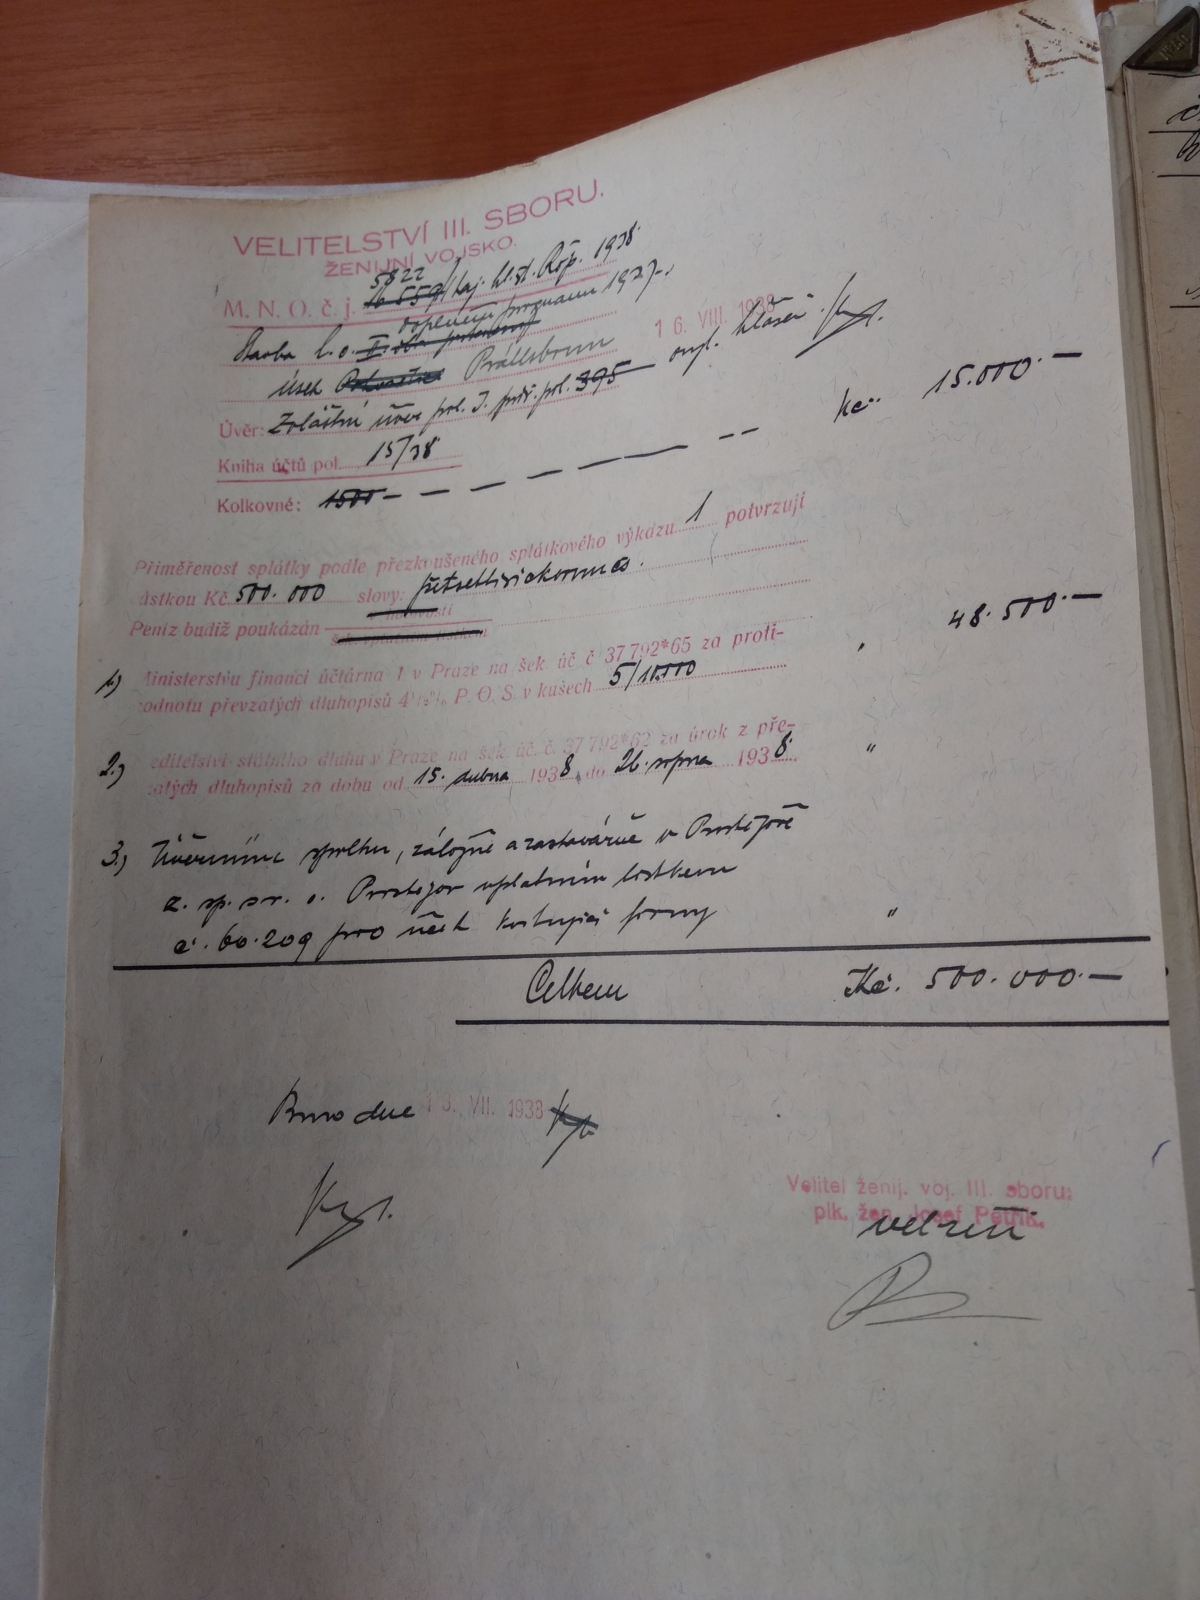 VELITELSTVÍ III. SBORU.
ŽENIJNÍ VOJSKO.
5822
M. N. O. č. j. 16559/taj. hl. št. Řop. 1938
doplnění programu 1937-.
Stavba l. o. II.
16. VIII. 1938
úsek Prállsbrun
Úvěr: Zvláštní úvěr pol. I. pol. 395
Kniha účtů pol. 15/38
Kolkovné: 1500 Kč 15.000.—
Přiměřenost splátky podle přezkoušeného splátkového výkazu 1 potvrzuji
ástkou Kč 500.000 slovy: pětsettisíckorunčs.
v hotovosti
Peníz budiž poukázán
1.) inisterstvu financí účtárna 1 v Praze na šek. úč. č 37792*65 za proti-
odnotu převzatých dluhopisů 4½% P. O. S. v kusech 5/10.000 " 48.500.—
2.) ředitelství státního dluhu v Praze na šek. úč. č. 37792*62 za úrok z pře-
atých dluhopisů za dobu od 15. dubna 1938 do 26. srpna 1938. "
3.) Úvěrnímu spolku, záložně a zastavárně v Prostějově
z. sp. s r. o. Prostějov vplatním lístkem
č. 60.209 pro účet kostující firmy "
Celkem Kč. 500.000.—
Brno dne 13. VII. 1938
Velitel ženij. voj. III. sboru:
plk. žen. Josef Petřík.